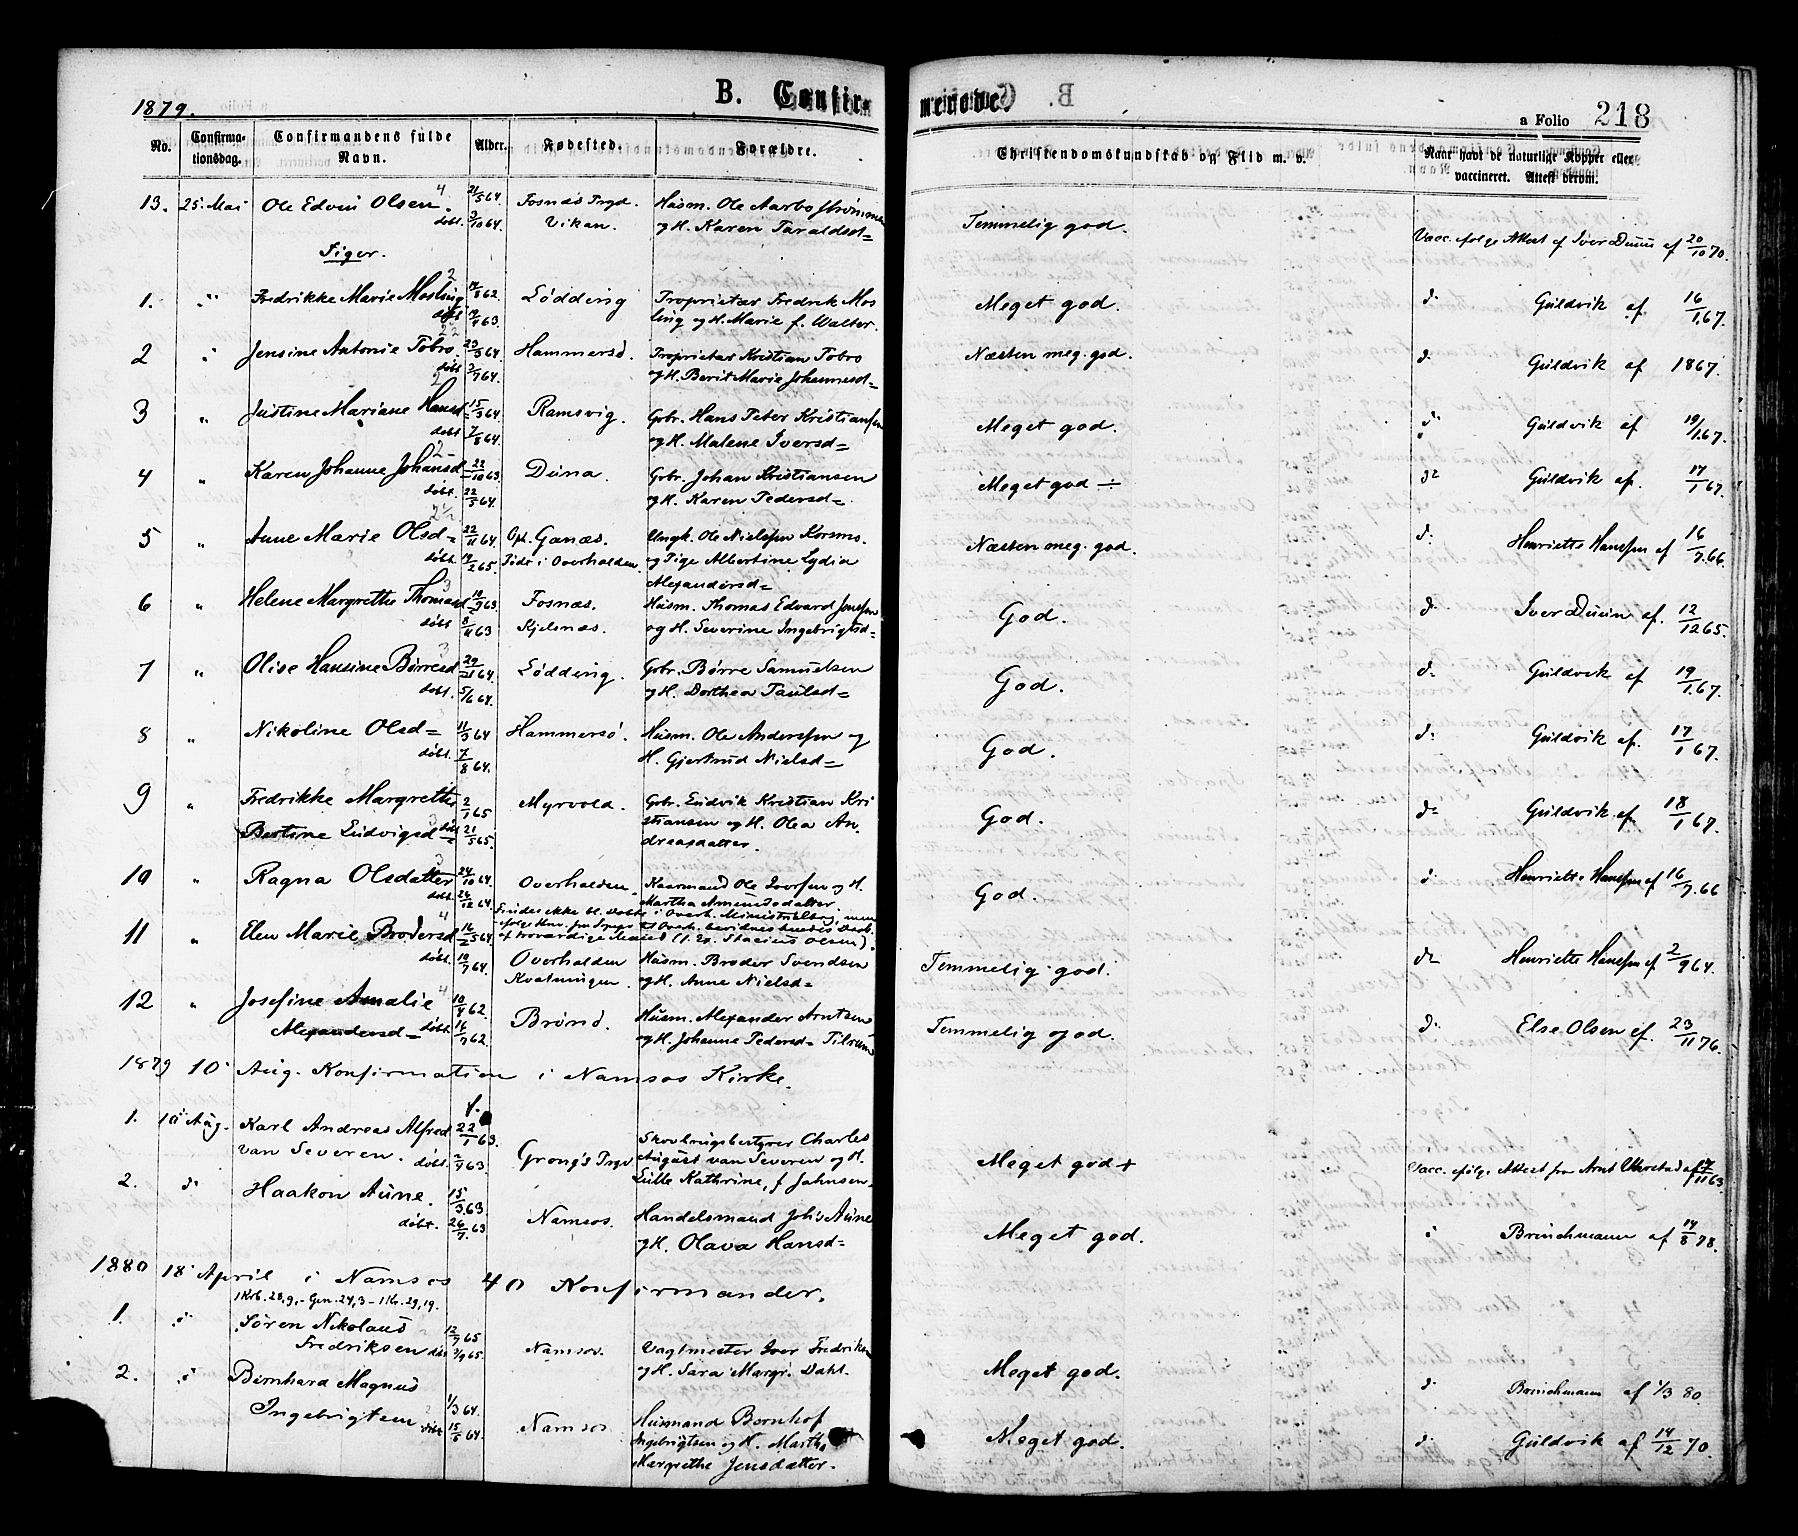 1879. B. Confirmerede. a Folio 218
No. Confirmationsdag. Confirmandens fulde Navn. Alder. Fødested. Forældre. Christendomskundskab og Flid m. v. Naar havt de naturlige Kopper eller vaccineret. Attest derom.
13. 25. Mai Ole Edvin Olsen. 4 21/5 64 Fosnæs Prgd. Husm. Ole Aarbostrømmen
døbt. 2/10 64. Vikan. og H. Karen Taraldsd= Temmelig god. Vacc. efølge Attest af Iver Duun af 20/10 70.
Piger.
1. " Fredrikke Marie Mosling 2 14/8 62 Lødding Proprietær Fredrik Mos
døbt 19/4 63. ling og H. Marie f. Walter. Meget god. d: Guldvik af. 16/1 67.
2 " Jensine Antonie Tobro. 2½ 23/3 64. Hammersø. Proprietær Kristian Tobro Næsten meg. god. d: Guldvik af 1867.
døbt 3/7 64. og H. Berit Marie Johannesd=
3 " Justine Mariane Hansd 2 15/3 64. Ramsvig. Gbr. Hans Peter Kristiansen Meget god. d: Guldvik af 19/1 67.
døbt 7/8 64. og H. Malene Iversd=
4 " Karen Johanne Johansd 2- 22/10 63. Duna. Gbr. Johan Kristiansen Meget god ÷ d: Guldvik af. 17/1 67.
døbt. 22/5 64. og H. Karen Pedersd=.
5 " Anne Marie Olsd= 2½ 22/11 64 Op. Ganæs. Ungk. Ole Nielssen Korsmo. Næsten meg. god. d: Henriette Hanssen af 16/7 66.
døbt. 19/2 65. Føde i Overhalden. og Pige Albertine Lydia
Alexandersd=
6 " Helene Margrethe Thomasd 3 18/9 63. Fosnæs. Husm. Thomas Edvard Jenssen God. d: Iver Duun af. 12/12 65.
døbt 8/11 63 Kjelsnæs. og H. Severine Ingebrigtsd=
7 " Olise Hansine Børresd 3 29/1 64. Lødding. Gbr. Børre Samuelsen God. d: Guldvik af 19/1 67.
døbt. 5/6 64. og H. Dorthea Paulsd=
8 " Nikoline Olsd= 11/3 64 Hammersø. Husm. Ole Anderssen og God. d: Guldvik af. 17/1 67.
døbt. 7/8 64. H. Gjertrud Nielsd=
9 " Fredrikke Margrethe 2/1 65 Myrvold. Gbr. Ludvik Kristian Kri God. d: Guldvik af. 18/1 67.
Bertine Ludvigsd= 3 døbt 21/5 65. stiansen og H. Olea An
dreasdatter.
10 " Ragna Olsdatter 3 24/10 64. Overhalden. Kaarmand Ole Iversen og H. God. d: Henriette Hanssen af 16/7 66
døbt. 26/12 64. Martha Amundsdatter.
Findes ikke bl. døbte i Overh. Ministerialbog, men
11 " Elen Marie Brodersd 4 16/5 64. af troværdige Mænd (1. Stacius Olsen).
døbt. 10/7 64. Overhalden Husm. Broder Svendsen Temmelig god. d: Henriette Hanssen af 2/9 64.
Kvatningen. og H. Anne Nielsd=
12 " Josefine Amalie 4 10/4 62. Brønd. Husm. Alexander Arntsen Temmelig god. d: Else Olsen af. 23/11 76.
Alexandersd= døbt. 16/7 62. og H. Johanne Pedersd= Tilrum
1879 10 Aug. Konfirmation i Namsos Kirke.
1. 10 Aug. Karl Andreas Alfred 22/1 63. Skovbrugsbestyrer Charles
van Severen. døbt. 2/4 63. Grong's Prgd August van Severen og H. Meget god + Vacc. efølge Attest fra Arnt Uhrstad af 7/11 63.
2. d: Haakon Aune. 15/3 63. Lulle Kathrine, f Jahnsen.
døbt. 26/7 63 Namsos. Handelsmand Johs Aune Meget god. " Brinchmann af 14/8 78.
og H. Olava Hansd=
1880 18 April i Namsos 40 Konfirmander.
1 Krb. 28,9,- Gen. 24,3 - 1 Kr. 29,19.
1. " Søren Nikolaus 12/7 65
Fredriksen døbt 3/9 65. Namsos. Vagtmester Iver Fredriksen Meget god. d: Brinchmann af 1/3 80.
2. " Bernhard Magnus og H. Sara Margr. Dahl.
Ingebrigtsen 1/3 64. Namsos Husmand Bernhof Meget god. d: Guldvik af 14/12 70.
døbt 15/5 64. Ingebrigtsen og H. Martha
Margrethe Jensdatter.